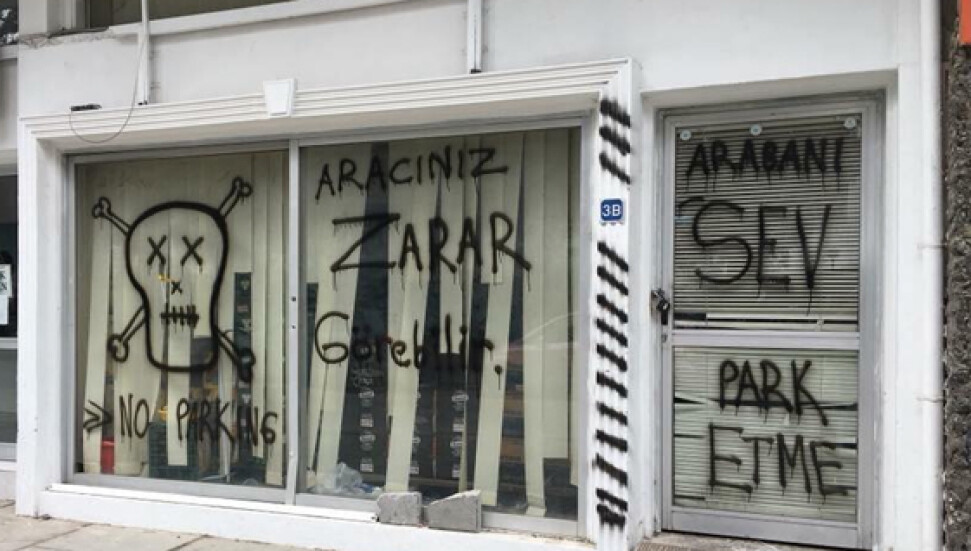 >> NO PARKING
ARACINIZ
ZARAR
Görebilir.
3B
ARABANI
SEV
PARK
ETME